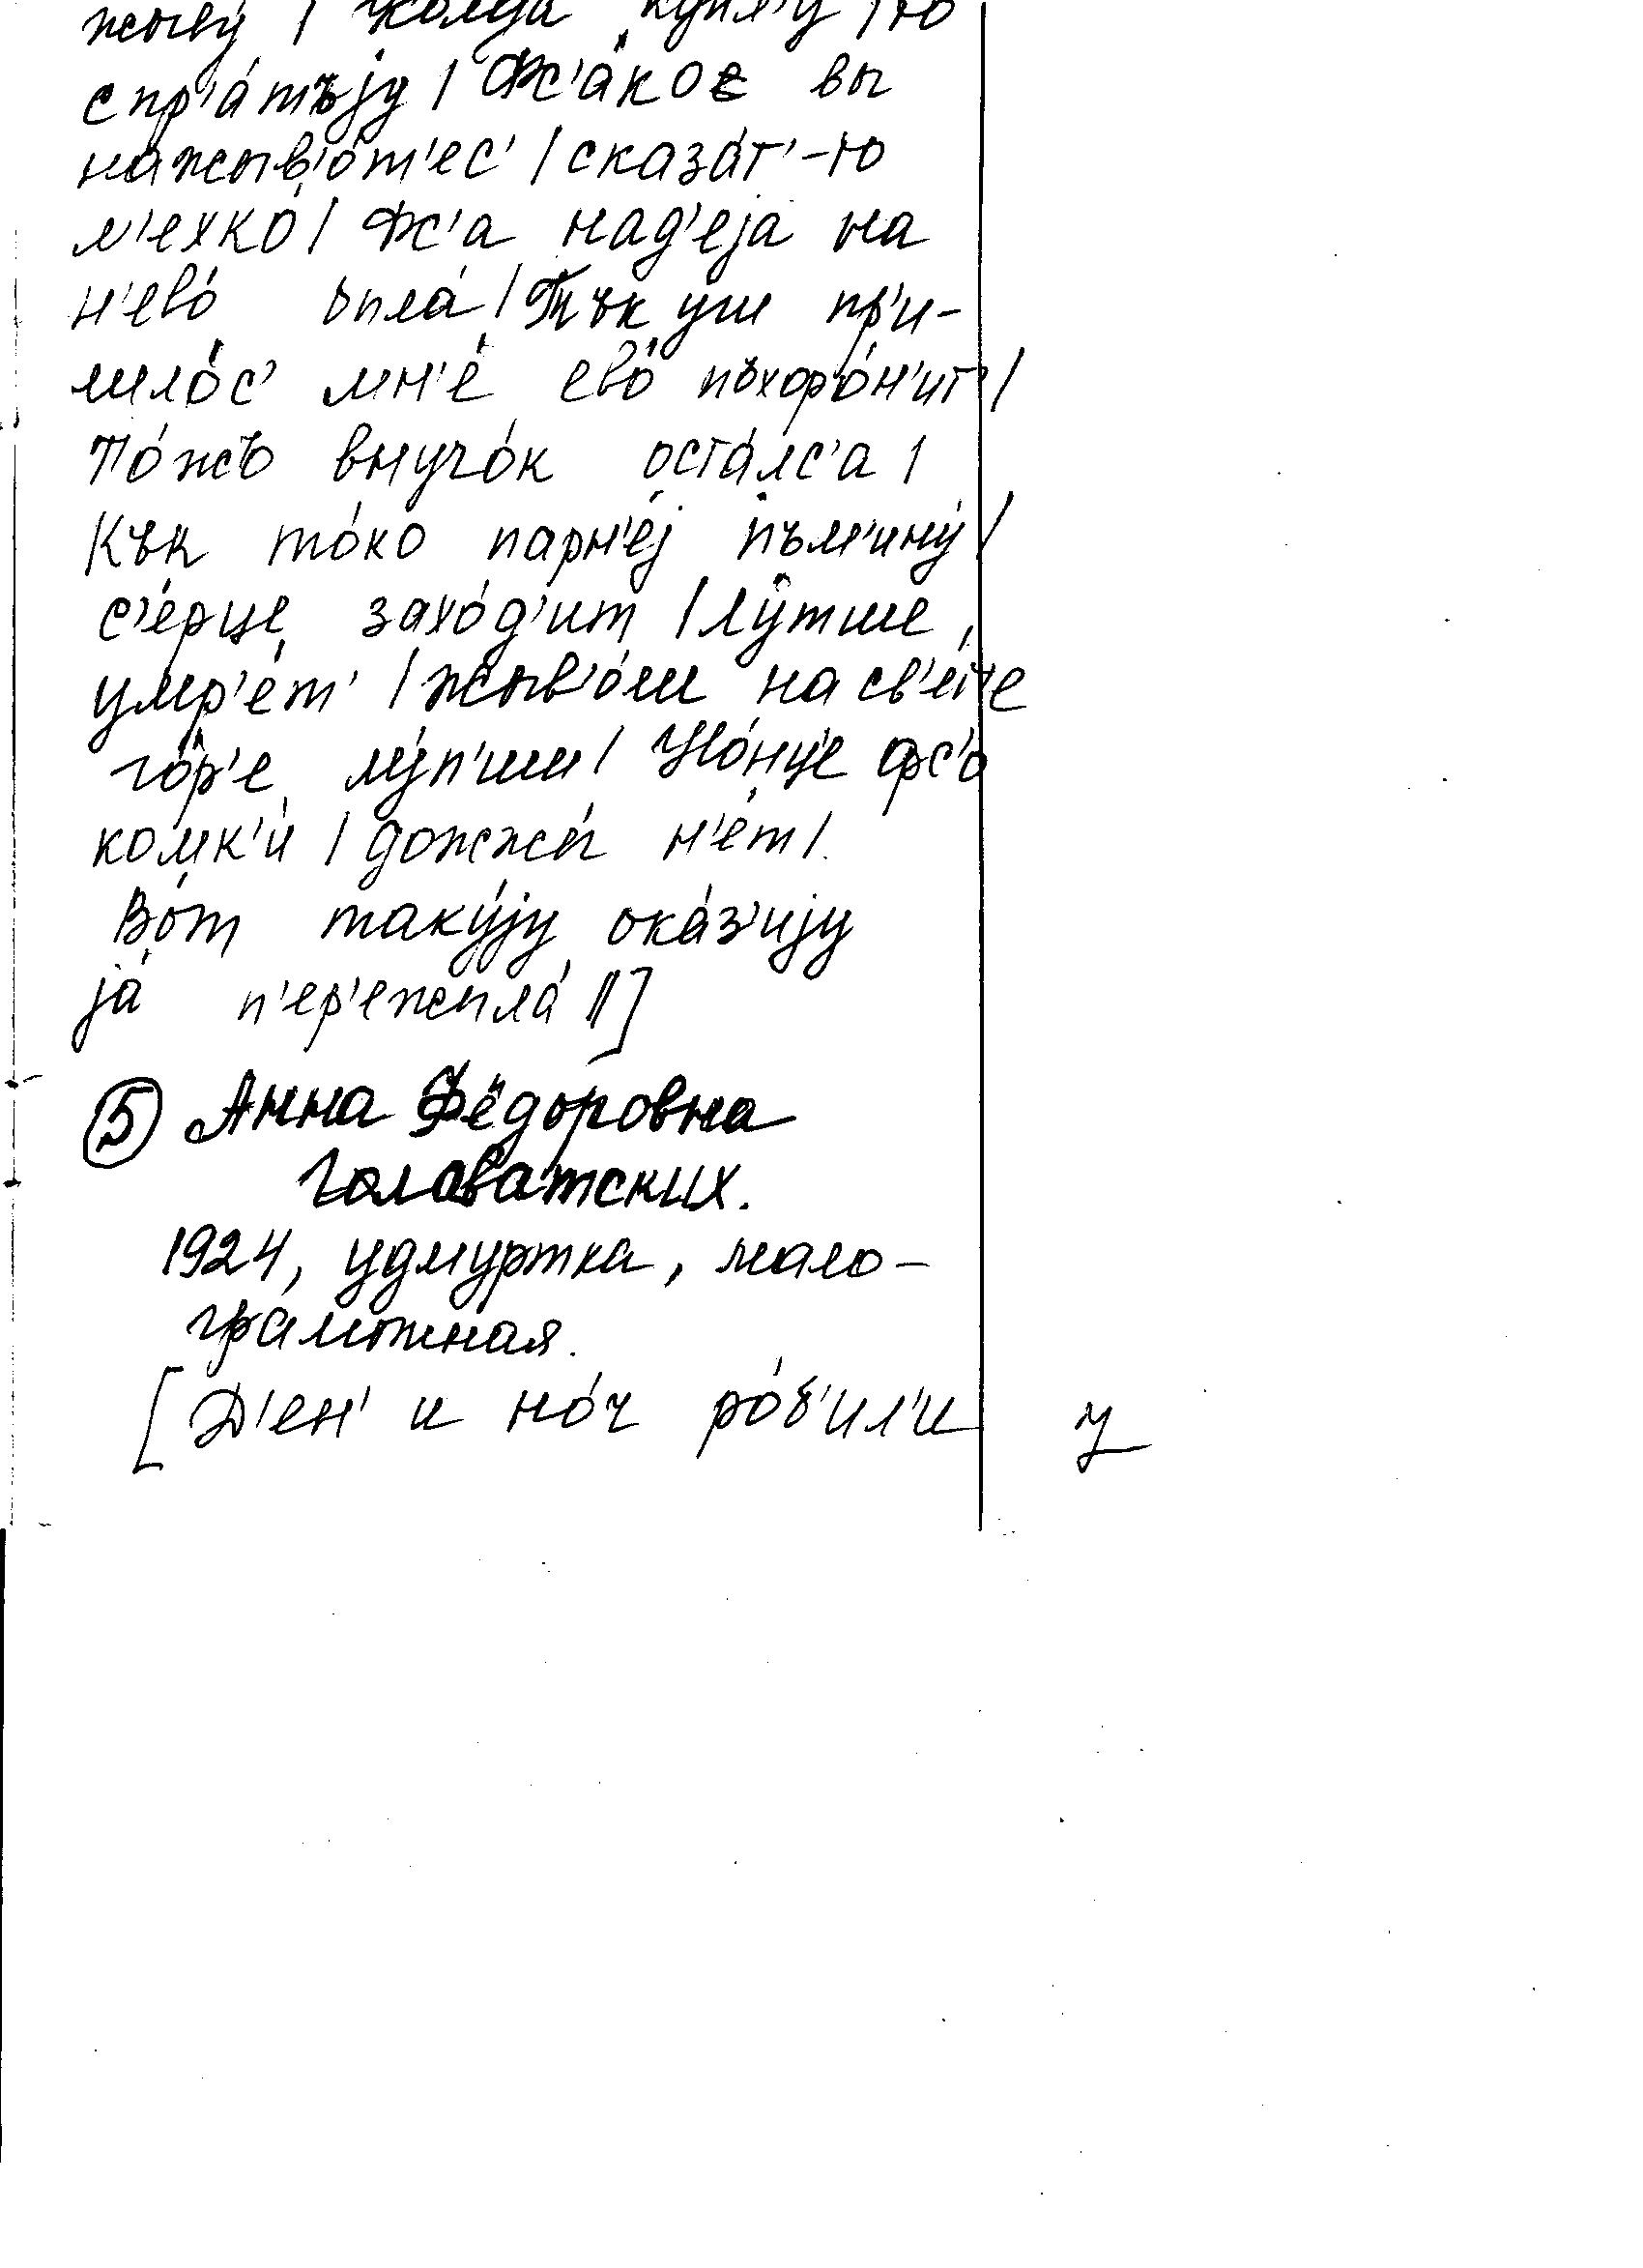 жыву́ / Когда купл'у / то
спр'а́тъjу / Фс'а́кое вы
нажыв'о́т'ес' / сказа́т'-то
л'ехко́ / Фс'а над'еjа на
н'ево́ была́ / Тък уш пр'и-
шло́с' мн'е́ ево́ пъхоро́н'ит' /
То́жъ внучо́к оста́лс'а /
Кък то́ко парн'е́j пъм'ину́ /
с'е́рце захо́д'ит / лу́тше
умр'е́т' / жыв'о́ш на св'е́т'е
го́р'е лу́п'ш / Но́нц'е фс'о
комк'и́ / дожжы́ н'е́т /
Во́т таку́jу ока́з'иjу
jа́ п'ер'ежыла́ //]
⑤ Анна Фёдоровна
Головатских.
1924, удмуртка, мало-
грамотная.
[Д'ен' и но́ч ро́б'ил'и у